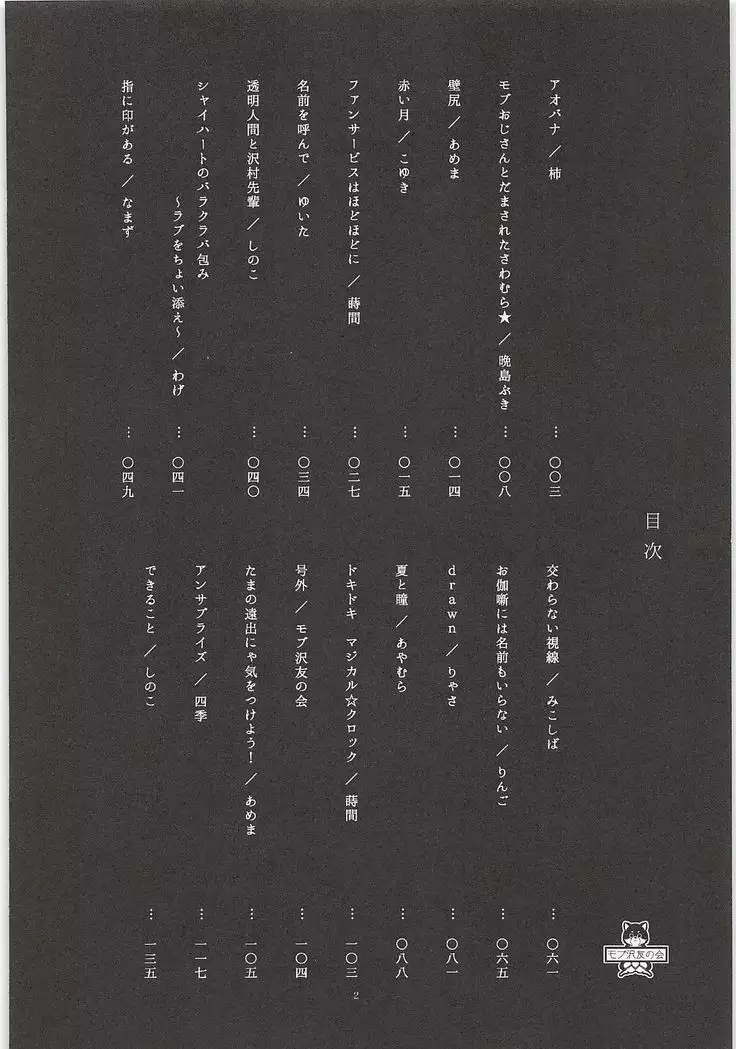 目次
アオバナ／柿 … 〇〇三
モブおじさんとだまされたさわむら★／晩島ふき … 〇〇八
壁尻／あめま … 〇一四
赤い月／こゆき … 〇一五
ファンサービスはほどほどに／蒔間 … 〇二七
名前を呼んで／ゆいた … 〇三四
透明人間と沢村先輩／しのこ … 〇四〇
シャイハートのバラクラバ包み
～ラブをちょい添え～／わげ … 〇四一
指に印がある／なまず … 〇四九
交わらない視線／みこしば … 〇六一
お伽噺には名前もいらない／りんご … 〇六五
drawn／りゃさ … 〇八一
夏と瞳／あやむら … 〇八八
ドキドキ マジカル☆クロック／蒔間 … 一〇三
号外／モブ沢友の会 … 一〇四
たまの遠出にゃ気をつけよう！／あめま … 一〇五
アンサプライズ／四季 … 一一七
できること／しのこ … 一三五
モブ沢友の会
2